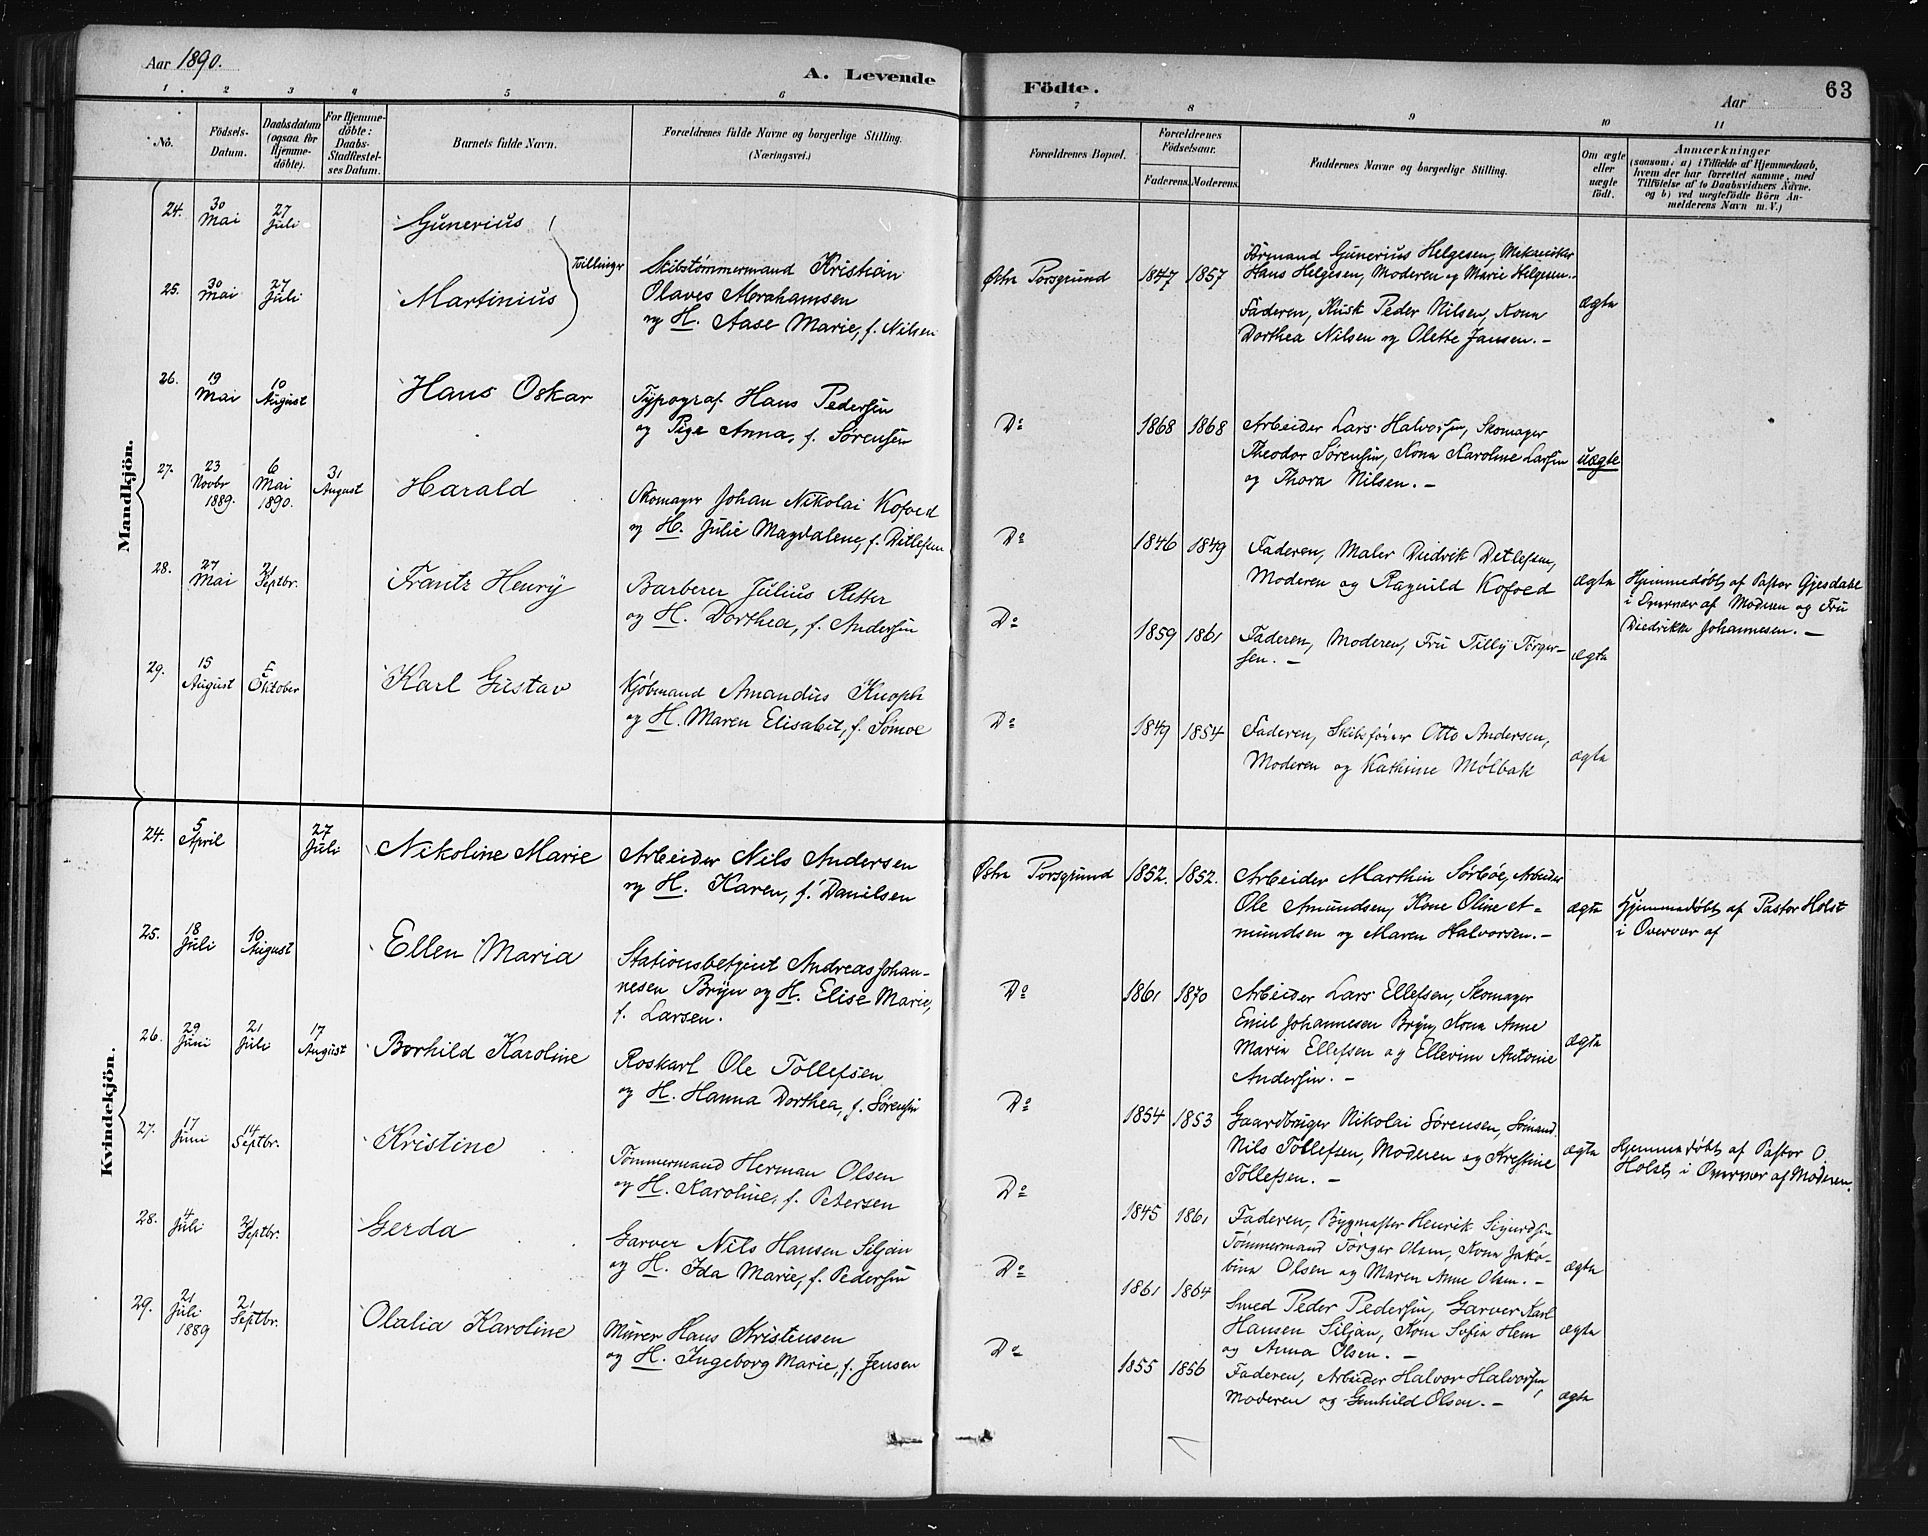 Aar 1890.
A. Levende
Födte.
Aar
63
1 2 3 4 5 6 7 8 9 10 11
No.
Födsels-
Datum.
Daabsdatum
(ogsaa for
Hjemme-
döbte).
For Hjemme-
döbte:
Daabs-
Stadfæstel-
ses Datum.
Barnets fulde Navn.
Forældrenes fulde Navne og borgerlige Stilling.
(Næringsvei.)
Forældrenes Bopæl.
Forældrenes
Födselsaar.
Faderens. Moderens.
Faddernes Navne og borgerlige Stilling.
Om ægte
eller
uægte
födt.
Anmærkninger
(saasom: a) i Tilfælde af Hjemmedaab,
hvem der har forrettet samme, med
Tilföielse af to Daabsvidners Navne,
og b) ved uægtefödte Börn An-
melderens Navn m. V.)
Mandkjön.
24. 30 Mai 27 Juli Gunerius
25. 30 Mai 27 Juli Martinius
Tvillinger
Skibstømmermand Kristian
Olaves Abrahamsen
og H. Aase Marie, f. Nilsen
Østre Porsgrund 1847 1857
Formand Gunerius Helgesen,
Hans Helgesen, Moderen og Marie Helgesen.
Faderen, Kusk Peder Nilsen, Kona
Dorthea Nilsen og Olette Jansen. –
ægte
26. 19 Mai 10 August Hans Oskar
Typograf Hans Pedersen
og Pige Anna, f. Sørensen
Do 1868 1868
Arbeider Lars Halvorsen, Skomager
Theodor Sørensen, Kona Karoline Larsen
og Thora Nilsen. –
uægte
27. 23 Novbr 1889. 6 Mai 1890. 31 August Harald
Skomager Johan Nikolai Kofoed
og H. Julie Magdalene, f. Ditlefsen
Do 1846 1849
Faderen, Maler Diedrik Detlefsen,
Moderen og Ragnild Kofoed
ægte
Hjemmedøbt af Pastor Gjesdahl
i Overvær af Moderen og Fru
Diedrikke Johannesen. –
28. 27 Mai 21 Septbr. Frantz Henry
Barberer Julius Retter
og H. Dorthea, f. Andersen
Do 1859 1861
Faderen, Moderen, Fru Tilly Törger-
sen. –
ægte
29. 15 August 5 Oktober Karl Gustav
Kjøbmand Amandus Knoph
og H. Maren Elisabet, f. Sømoe
Do 1849 1854
Faderen, Skibsfører Otto Andersen,
Moderen og Kathrine Mølbak
ægte
Kvindekjön.
24. 5 April 27 Juli Nikoline Marie
Arbeider Nils Andersen
og H. Karen, f. Danilsen
Østre Porsgrund 1852. 1852.
Arbeider Marthin Sørbøe, Arbeider
Ole Amundsen, Kone Oline A-
mundsen og Maren Halvorsen. –
ægte
Hjemmedøbt af Pastor Holst
i Overvær af
25. 18 Juli 10 August Ellen Maria
Stationsbetjent Andreas Johan-
nesen Bryn og H. Elise Marie,
f. Larsen.
Do 1861 1870
Arbeider Lars Ellefsen, Skomager
Emil Johannesen Bryn, Kona Anne
Maria Ellefsen og Ellevine Antonie
Andersen. –
ægte
26. 29 Juni 21 Juli 17 August Borhild Karoline
Roskarl Ole Tollefsen
og H. Hanna Dorthea, f. Sørensen
Do 1854 1853
Gaardbruger Nikolai Sørensen, Sömand
Nils Tollefsen, Moderen og Krestine
Tollefsen. –
ægte
Hjemmedøbt af Pastor O.
Holst i Overvær af Moderen.
27. 17 Juni 14 Septbr. Kristine
Tømmermand Herman Olsen
og H. Karoline, f. Petersen
Do 1845 1861
Faderen, Bygmester Henrik Sigurdsen
Tømmermand Törger Olsen, Kona Jako-
bina Olsen og Maren Anne Olsen. –
ægte
28. 4 Juli 21 Septbr. Gerda
Garver Nils Hansen Siljan
og H. Ida Marie, f. Pedersen
Do 1861 1864
Smed Peder Pedersen, Garver Karl
Hansen Siljan, Kona Sofie Hem
og Anna Olsen. –
ægte
29. 21 Juli 1889 21 Septbr. Olalia Karoline
Murer Hans Kristensen
og H. Ingeborg Marie, f. Jensen
Do 1855 1856
Faderen, Arbeider Halvor Halvorsen,
Moderen og Gunhild Olsen. –
ægte